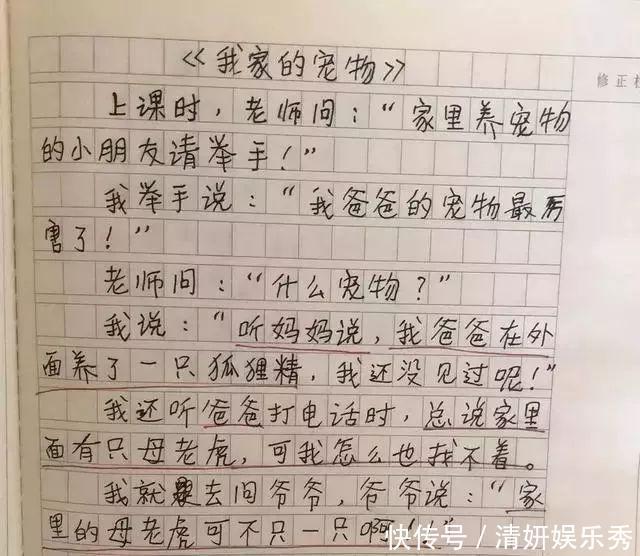 《我家的宠物》
修正栏
上课时，老师问：“家里养宠物
的小朋友请举手！”
我举手说：“我爸爸的宠物最厉
害了！”
老师问：“什么宠物？”
我说：“听妈妈说，我爸爸在外
面养了一只狐狸精，我还没见过呢！”
我还听爸爸打电话时，总说家里
面有只母老虎，可我怎么也找不着。
我就去问爷爷，爷爷说：“家
里的母老虎可不只一只啊！”
快传号／清妍娱乐秀